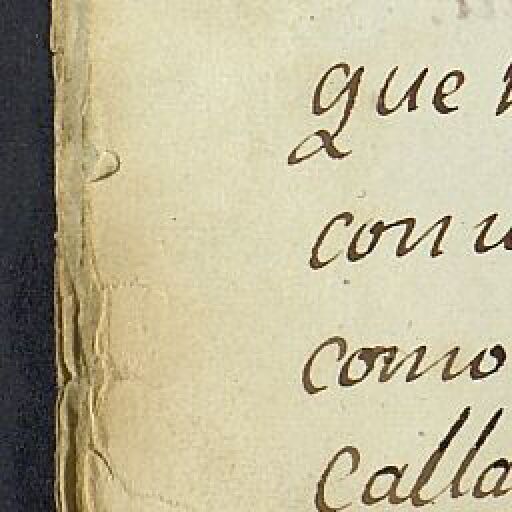 que
con
como
Calla